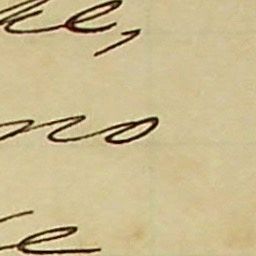 ke,
no
e